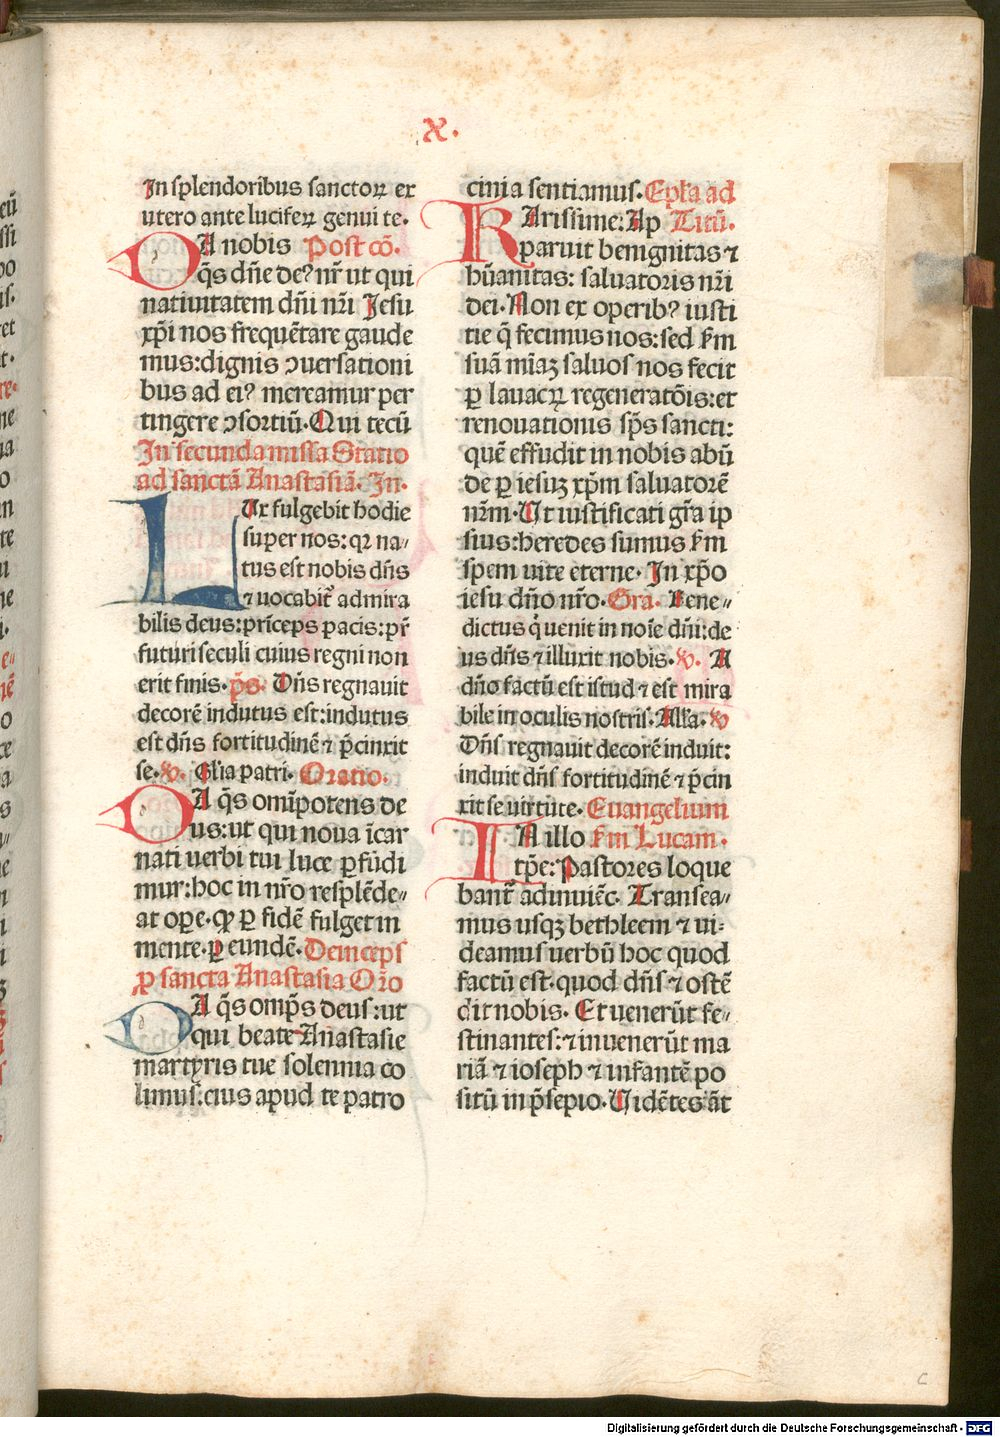 x.
In splendoribus sanctoꝝ ex
utero ante luciferꝝ genui te.
DA nobis Post cō.
q̄s dn̄e deꝰ nr̄ ut qui
natiuitatem dn̄i nr̄i Jesu
xp̄i nos frequētare gaude
mus:dignis ↄuersationi
bus ad eiꝰ mereamur per
tingere ↄsortiū. Qui tecū
In secunda missa Statio
ad sanctā Anastasiā. In.
LUx fulgebit hodie
super nos: qꝛ na⸗
tus est nobis dn̄s
⁊ uocabit᷑ admira
bilis deus: prīceps pacis: pr̄
futuri seculi cuius regni non
erit finis. p̄s. Dn̄s regnauit
decorē indutus est: indutus
est dn̄s fortitudinē ⁊ p̄cinxit
se. ℣. Gl̄ia patri. Oratio.
DA q̄s omīpotens de
us: ut qui noua īcar
nati uerbi tui luce ꝑfūdi
mur: hoc in nr̄o resplēde⸗
at oꝑe. ꝙ ꝑ fidē fulget in
mente. ꝑ eundē. Deinceps
ꝓ sancta Anastasia Or̄o
DA q̄s omp̄s deus: ut
qui beate Anastasie
martyris tue solennia co
limus: eius apud te patro
cinia sentiamus. Epl̄a ad
KArissime: Ap Titū.
paruit benignitas ⁊
hūanitas: saluatoris nr̄i
dei. Non ex operibꝰ iusti
tie q̄ fecimus nos: sed ẜm
suā mīaꝫ saluos nos fecit
ꝑ lauacꝝ regeneratōis: et
renouationis sp̄s sancti:
quē effudit in nobis abū
de ꝑ iesuꝫ xp̄m saluatorē
nr̄m. Ut iustificati gr̄a ip
sius: heredes sumus ẜm
spem uite eterne. In xp̄o
iesu dn̄o nr̄o. Gra. Bene⸗
dictus q̇ uenit in noīe dn̄i: de
us dn̄s ⁊ illuxit nobis. ℣. A
dn̄o factū est istud ⁊ est mira
bile in oculis nostris. All̄a. ℣
Dn̄s regnauit decorē induit:
induit dn̄s fortitudinē ⁊ p̄cin
xit se uirtute. Euangelium
IN illo ẜm Lucam.
tp̄e: Pastores loque
bant᷑ adinuicē. Transea⸗
mus usqꝫ bethleem ⁊ ui⸗
deamus uerbū hoc quod
factū est. quod dn̄s ⁊ ostē
dit nobis. Et uenerūt fe⸗
stinantes: ⁊ inuenerūt ma
riā ⁊ ioseph ⁊ infantē po
sitū in p̄sepio. Uidētes āt
c
Digitalisierung gefördert durch die Deutsche Forschungsgemeinschaft - DFG